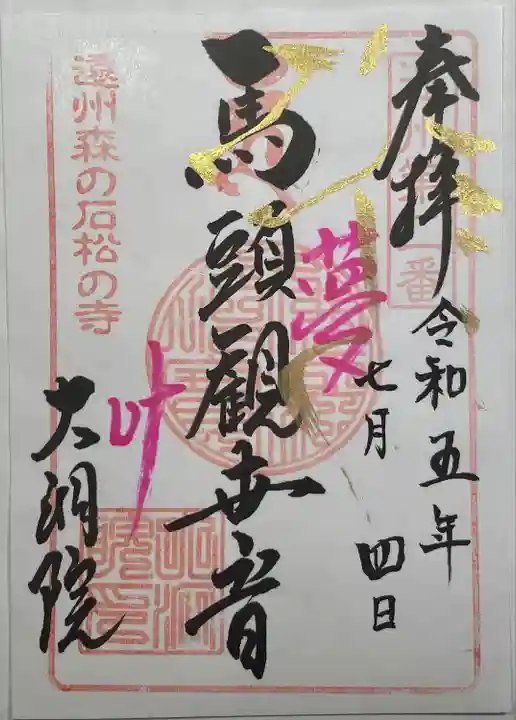 奉拝
令和五年
七月四日
夢
馬頭観世音
叶
大洞院
遠州森の石松の寺
番